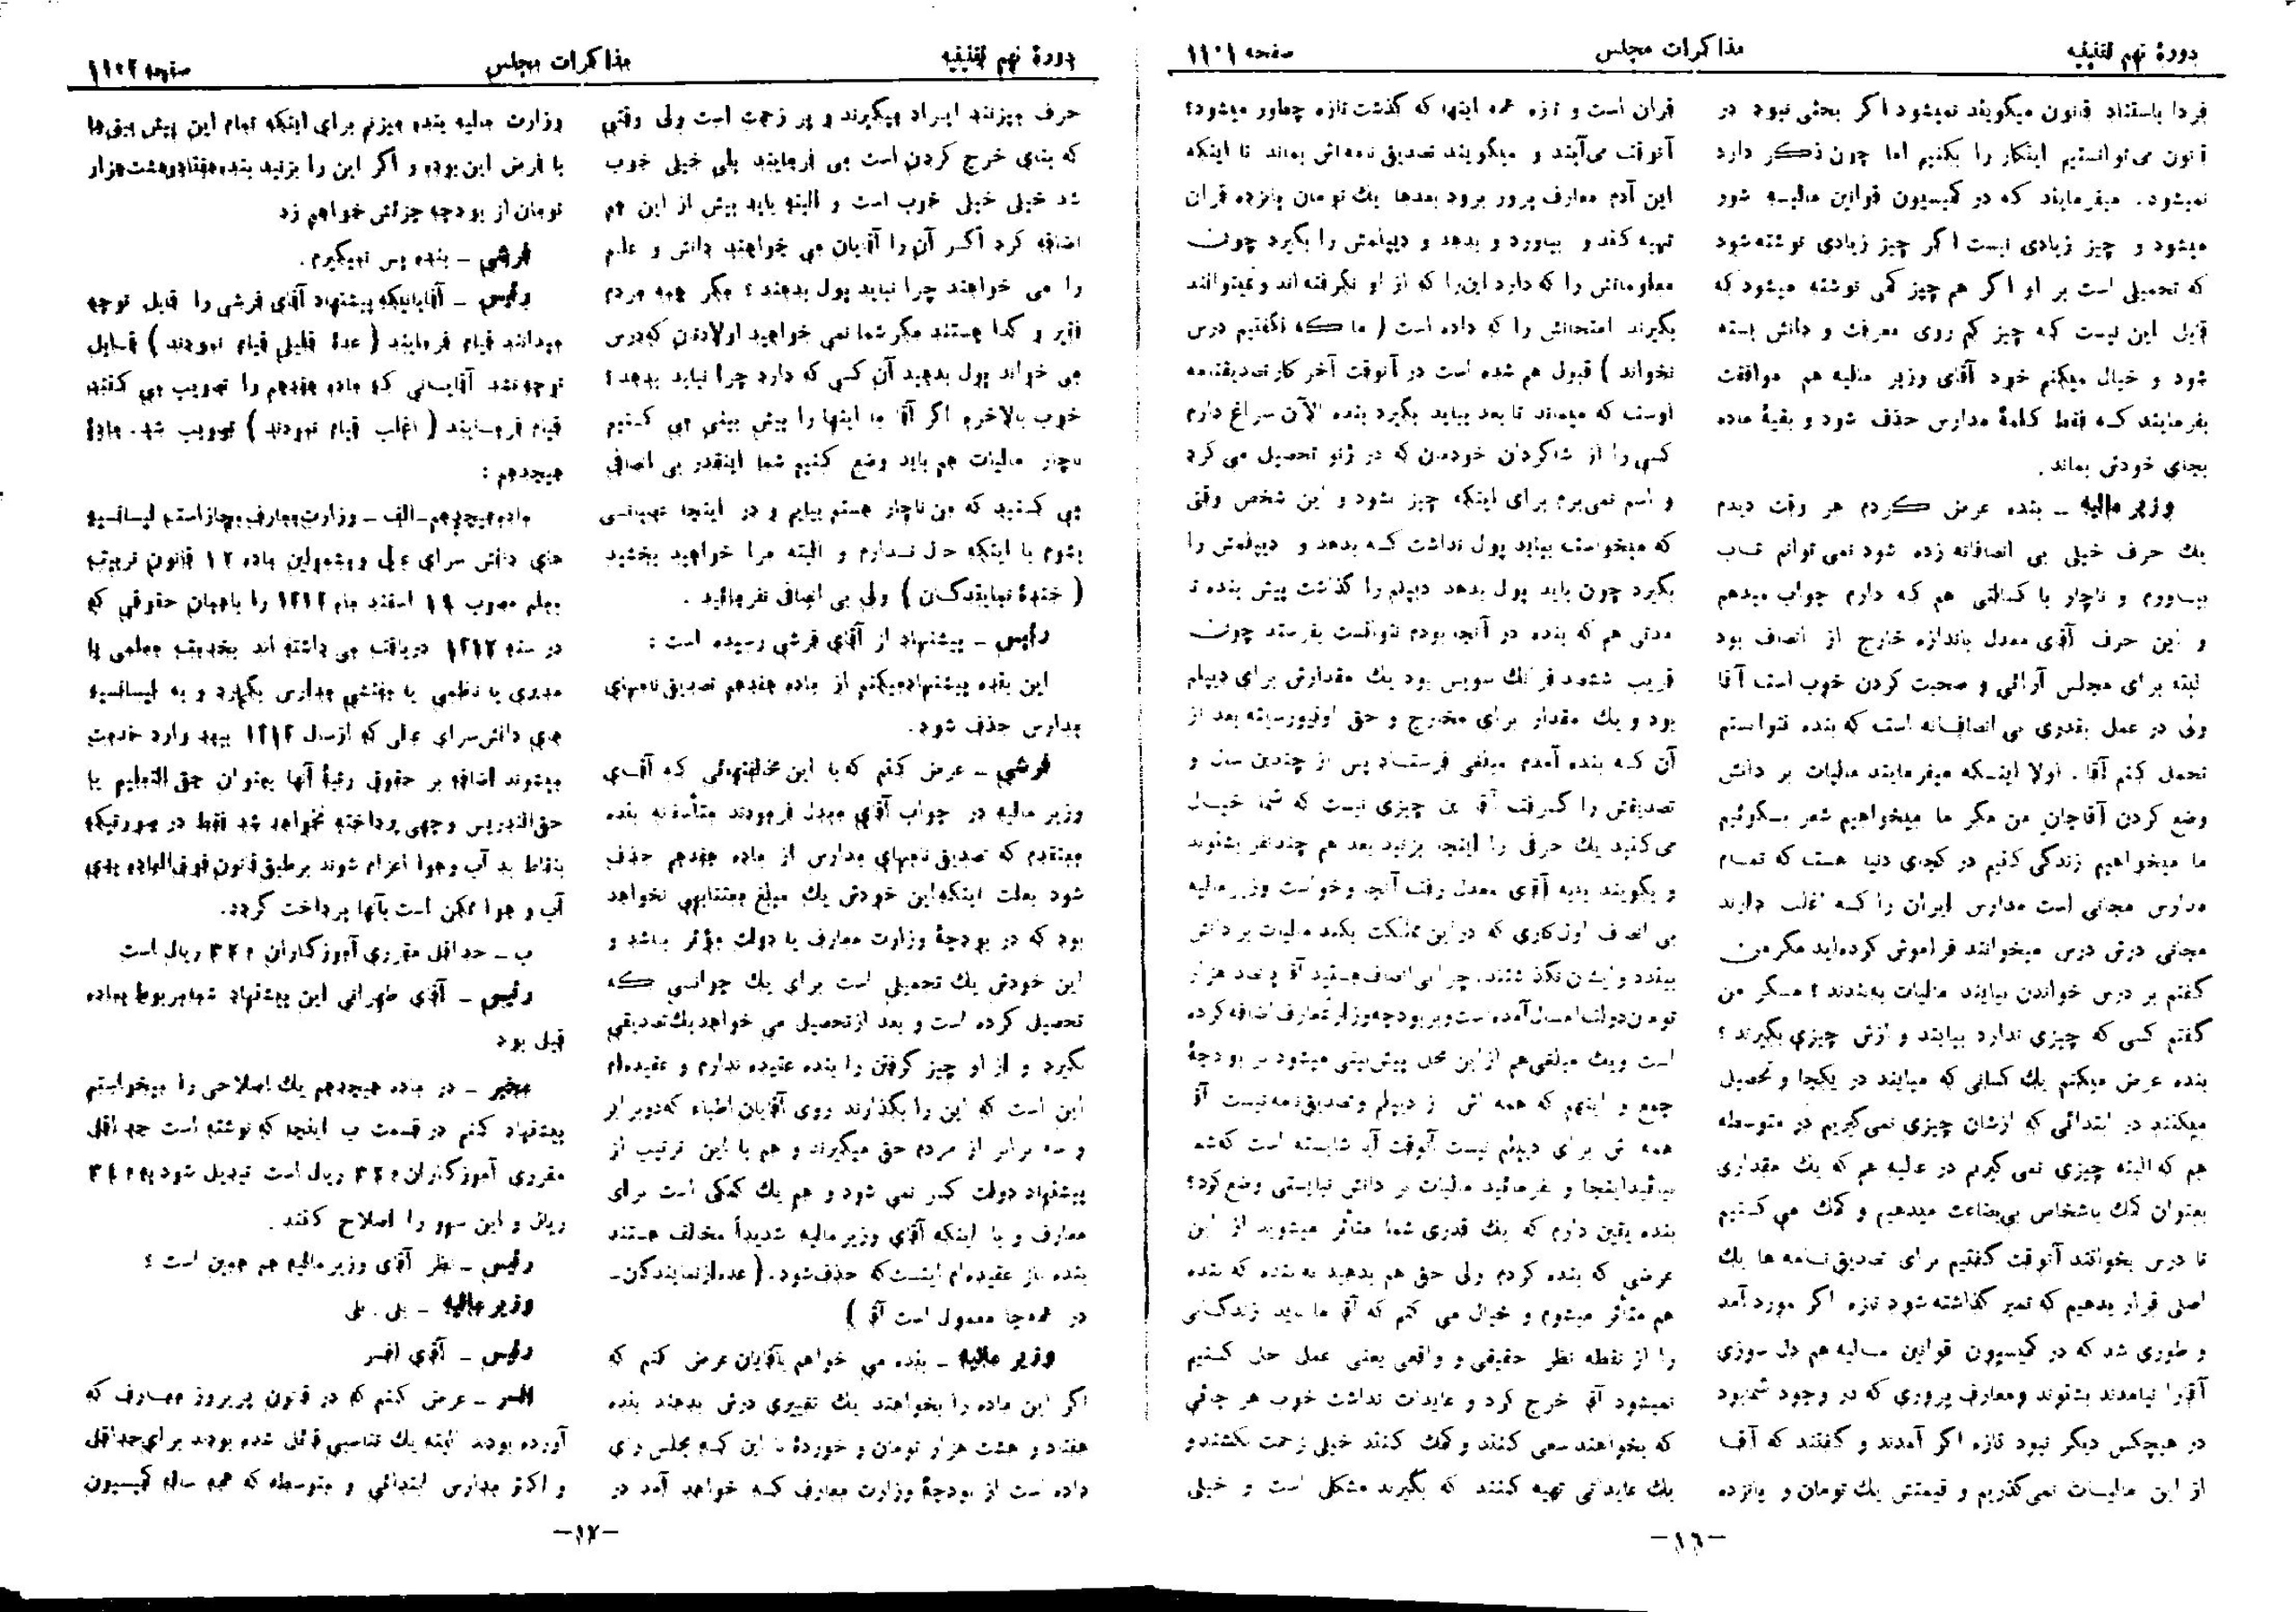 دورهٔ نهم تقنینیه
مذاکرات مجلس
صفحه ۱۱۰۱
فردا باستناد قانون میگویند نمیشود اگر بحثی نبود در
قانون می‌توانستیم اینکار را بکنیم اما چون ذکر دارد
نمیشود. میفرمایند که در کمیسیون قوانین مالیه شور
میشود و چیز زیادی نیست اگر چیز زیادی نوشته شود
که تحمیلی است بر او اگر هم چیز کمی نوشته میشود که
قابل این نیست که چیز کم روی معرفت و دانش بسته
شود و خیال میکنم خود آقای وزیر مالیه هم موافقت
بفرمایند که فقط کلمهٔ مدارس حذف شود و بقیهٔ ماده
بجای خودش بماند.
وزیر مالیه - بنده عرض کردم هر وقت دیدم
یك حرف خیلی بی انصافانه زده شود نمی توانم تاب
بیاورم و ناچار با کسالتی هم که دارم جواب میدهم
و این حرف آقای معدل باندازه خارج از انصاف بود
البته برای مجلس آرائی و صحبت کردن خوب است آقا
ولی در عمل بقدری بی انصافانه است که بنده نتوانستم
تحمل کنم آقا. اولا اینکه میفرمایند مالیات بر دانش
وضع کردن آقاجان من مگر ما میخواهیم شعر بگوئیم
ما میخواهیم زندگی کنیم در کجای دنیا هست که تمام
مدارس مجانی است مدارس ایران را که اغلب دارند
مجانی درش درس میخوانند فراموش کرده‌اید مگر من
گفتم بر درس خواندن بیایند مالیات به‌بندند؟ مگر من
گفتم کسی که چیزی ندارد بیایند و ازش چیزی بگیرند؟
بنده عرض میکنم یك کسانی که میایند در یکجا و تحصیل
میکنند در ابتدائی که ازشان چیزی نمی‌گیریم در متوسطه
هم که البته چیزی نمی گیریم در عالیه هم که یك مقداری
بعنوان کمك باشخاص بی‌بضاعت میدهیم و کمك می کنیم
تا درس بخوانند آنوقت گفتیم برای تصدیق نامه ها یك
اصلی قرار بدهیم که تمبر گذاشته شود تازه اگر مورد آمد
و طوری شد که در کمیسیون قوانین مالیه هم دل سوزی
آقا را نیامدند بشنوند و معارف پروری که در وجود شما بود
در هیچکس دیگر نبود تازه اگر آمدند و گفتند که آقا
از این مالیات نمی‌گذریم و قیمتش یك تومان و پانزده
قران است و تازه همه اینها که گذشت تازه چطور میشود؟
آنوقت می‌آیند و میگویند تصدیق نامه‌اش بماند تا اینکه
این آدم معارف پرور برود بعدها یك تومان پانزده قران
تهیه کند و بیاورد و بدهد و دیپلمش را بگیرد چون
معلوماتش را که دارد این‌را که از او نگرفته اند و نمیتوانند
بگیرند امتحانش را که داده است ( ما که نگفتیم درس
نخواند ) قبول هم شده است در آنوقت آخر کار تصدیقنامه
اوست که میماند تا بعد بیاید بگیرد بنده الآن سراغ دارم
کسی را از شاگردان خودمان که در ژنو تحصیل می کرد
و اسم نمی‌برم برای اینکه چیز نشود و این شخص وقتی
که میخواست بیاید پول نداشت که بدهد و دیپلمش را
بگیرد چون باید پول بدهد دیپلم را گذاشت پیش بنده تا
مدتی هم که بنده در آنجا بودم نتوانست بفرستد چون
قریب ششصد فرانك سویس بود یك مقدارش برای دیپلم
بود و یك مقدار برای مخارج و حق اونیورسیته بعد از
آن که بنده آمدم مبلغی فرستاد پس از چندین سال و
تصدیقش را گرفت آقا این چیزی نیست که شما خیال
می‌کنید یك حرفی را اینجا بزنید بعد هم چندنفر بشنوند
و بگویند بدبه آقای معدل رفت آنجا و خواست وزیر مالیه
بی انصاف اول کاری که در این مملکت بکند مالیات بر دانش
ببندد و ایشان نگذاشتند. چرا بی انصاف هستید آقا پانصد هزار
تومان دولت امسال آمده است و بر بودجه وزارت معارف اضافه کرده
است و یك مبلغی هم از این محل پیش‌بینی میشود بر بودجهٔ
جمع و اینهم که همه اش از دیپلم و تصدیق‌نامه نیست آقا
همه اش برای دیپلم نیست آنوقت آیا شایسته است که شما
بیائید اینجا و بفرمائید مالیات بر دانش نبایستی وضع کرد؟
بنده یقین دارم که یك قدری شما متأثر میشوید از این
عرضی که بنده کردم ولی حق هم بدهید به بنده که بنده
هم متأثر میشوم و خیال می کنم که آقا ما باید زندگانی
را از نقطه نظر حقیقی و واقعی یعنی عمل حل کنیم
نمیشود آقا خرج کرد و عایدات نداشت خوب هر جائی
که بخواهند سعی کنند و کمك کنند خیلی زحمت بکشند و
یك عایداتی تهیه کنند که بگیرند مشکل است و خیلی
-۱۶-
دورهٔ نهم تقنینیه
مذاکرات مجلس
صفحه ۱۱۰۲
حرف میزنند ایراد میگیرند و پر زحمت است ولی وقتی
که بنای خرج کردن است می فرمایند بلی خیلی خوب
شد خیلی خیلی خوب است و البته باید بیش از این هم
اضافه کرد اگر آن را آقایان می خواهند دانش و علم
را می خواهند چرا نباید پول بدهند؟ مگر همه مردم
فقیر و گدا هستند مگر شما نمی خواهید اولادتان که درس
می خواند پول بدهید آن کسی که دارد چرا نباید بدهد؟
خوب بالاخره اگر آقا ما اینها را پیش بینی می کنیم
ناچار مالیات هم باید وضع کنیم شما اینقدر بی انصافی
می کنید که من ناچار هستم بیایم و در اینجا عصبانی
بشوم با اینکه حال ندارم و البته مرا خواهید بخشید
( خندهٔ نمایندگان ) ولی بی انصافی نفرمائید.
رئیس - پیشنهاد از آقای فرشی رسیده است:
این بنده پیشنهاد میکنم از ماده هفدهم تصدیق نامهای
مدارس حذف شود.
فرشی - عرض کنم که با این مخالفتهائی که آقای
وزیر مالیه در جواب آقای معدل فرمودند متأسفانه بنده
معتقدم که تصدیق نامهای مدارس از ماده هفدهم حذف
شود بعلت اینکه این خودش یك مبلغ معتنابهی نخواهد
بود که در بودجهٔ وزارت معارف یا دولت مؤثر باشد و
این خودش یك تحمیلی است برای یك جوانی که
تحصیلی کرده است و بعد از تحصیل می خواهد یك تصدیقی
بگیرد و از او چیز گرفتن را بنده عقیده ندارم و عقیده‌ام
این است که این را بگذارند روی آقایان اطباء که دو برابر
و سه برابر از مردم حق میگیرند و هم با این ترتیب از
پیشنهاد دولت کسر نمی شود و هم یك کمکی است برای
معارف و با اینکه آقای وزیر مالیه شدیداً مخالف هستند
بنده باز عقیده‌ام اینست که حذف شود. ( عده از نمایندگان-
در همه‌جا معمول است آقا )
وزیر مالیه - بنده می خواهم بآقایان عرض کنم که
اگر این ماده را بخواهند یك تغییری درش بدهند بنده
هفتاد و هشت هزار تومان و خوردهٔ با این که مجلس رأی
داده است از بودجهٔ وزارت معارف که خواهد آمد در
وزارت مالیه بنده میزنم برای اینکه تمام این پیش بینی‌ها
با فرض این بوده و اگر این را بزنید بنده هفتاد و هشت هزار
تومان از بودجه جزئش خواهم زد
فرشی - بنده پس نمیگیرم.
رئیس - آقایانیکه پیشنهاد آقای فرشی را قابل توجه
میدانند قیام فرمایند ( عدهٔ قلیلی قیام نمودند ) قابل
توجه نشد آقایانی که ماده هفدهم را تصویب می کنند
قیام فرمایند ( اغلب قیام نمودند ) تصویب شد. مادهٔ
هیجدهم:
ماده هیجدهم-الف - وزارت معارف مجاز است لیسانسیه
های دانش سرای عالی و مشمولین ماده ۱۲ قانون تربیت
معلم مصوب ۱۹ اسفند ماه ۱۳۱۲ را باهمان حقوقی که
در سنه ۱۳۱۲ دریافت می داشته اند بخدمت معلمی یا
مدیری یا نظامی یا مفتشی مدارس بگمارد و به لیسانسیه
های دانش‌سرای عالی که از سال ۱۳۱۲ ببعد وارد خدمت
میشوند اضافه بر حقوق رتبهٔ آنها بعنوان حق التعلیم یا
حق‌التدریس وجهی پرداخته نخواهد شد فقط در صورتیکه
بنقاط بد آب و هوا اعزام شوند بر طبق قانون فوق العاده بدی
آب و هوا ممکن است بآنها پرداخت گردد.
ب - حداقل مقرری آموزگاران ۲۲۰ ریال است
رئیس - آقای طهرانی این پیشنهاد شما مربوط بماده
قبل بود
مخبر - در ماده هیجدهم یك اصلاحی را میخواستم
پیشنهاد کنم در قسمت ب اینجا که نوشته است حداقل
مقرری آموزگاران ۲۲۰ ریال است تبدیل شود به
ریال و این سهو را اصلاح کنند.
رئیس - نظر آقای وزیر مالیه هم همین است؟
وزیر مالیه - بلی. بلی
رئیس - آقای افسر
افسر - عرض کنم که در قانون پریروز معارف که
آورده بودند البته یك تناسبی قائل شده بودند برای حداقل
و اکثر مدارس ابتدائی و متوسطه که همه ساله کمیسیون
-۱۷-